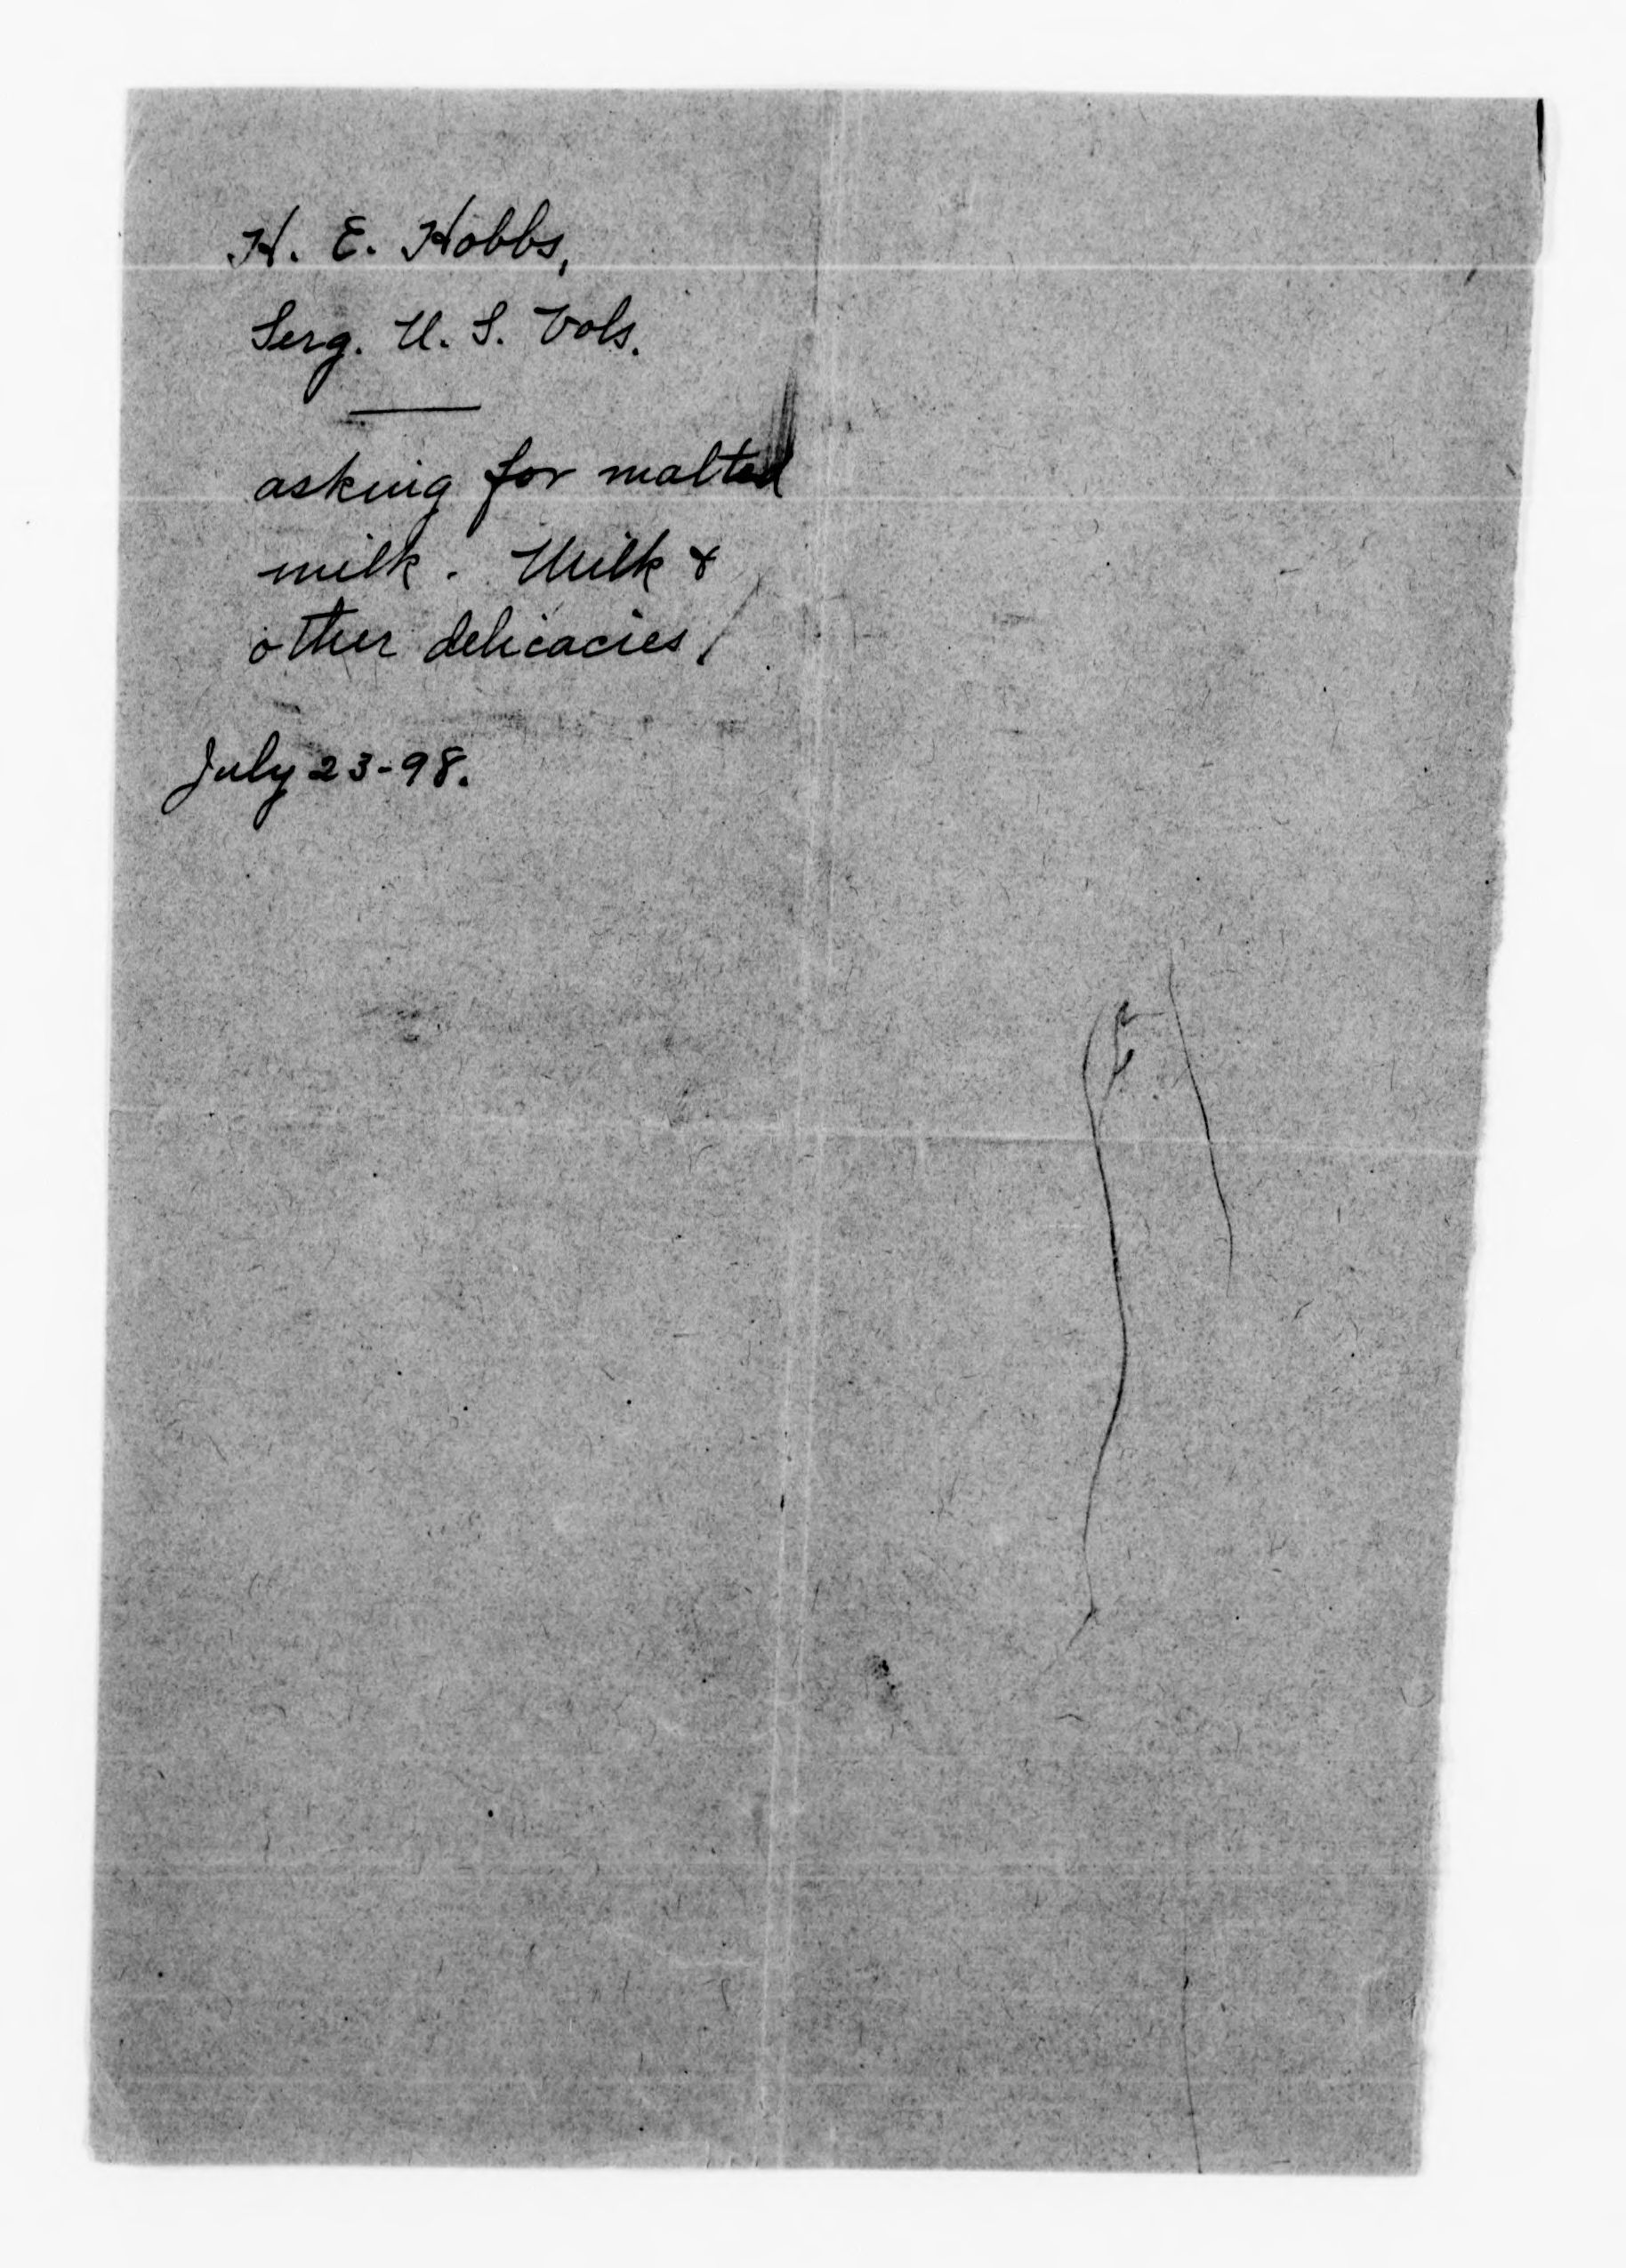 H. E. Hobbs,
Serg. U. S. Vols.
asking for malted
milk. Milk &
other delicacies.
July 23-98.